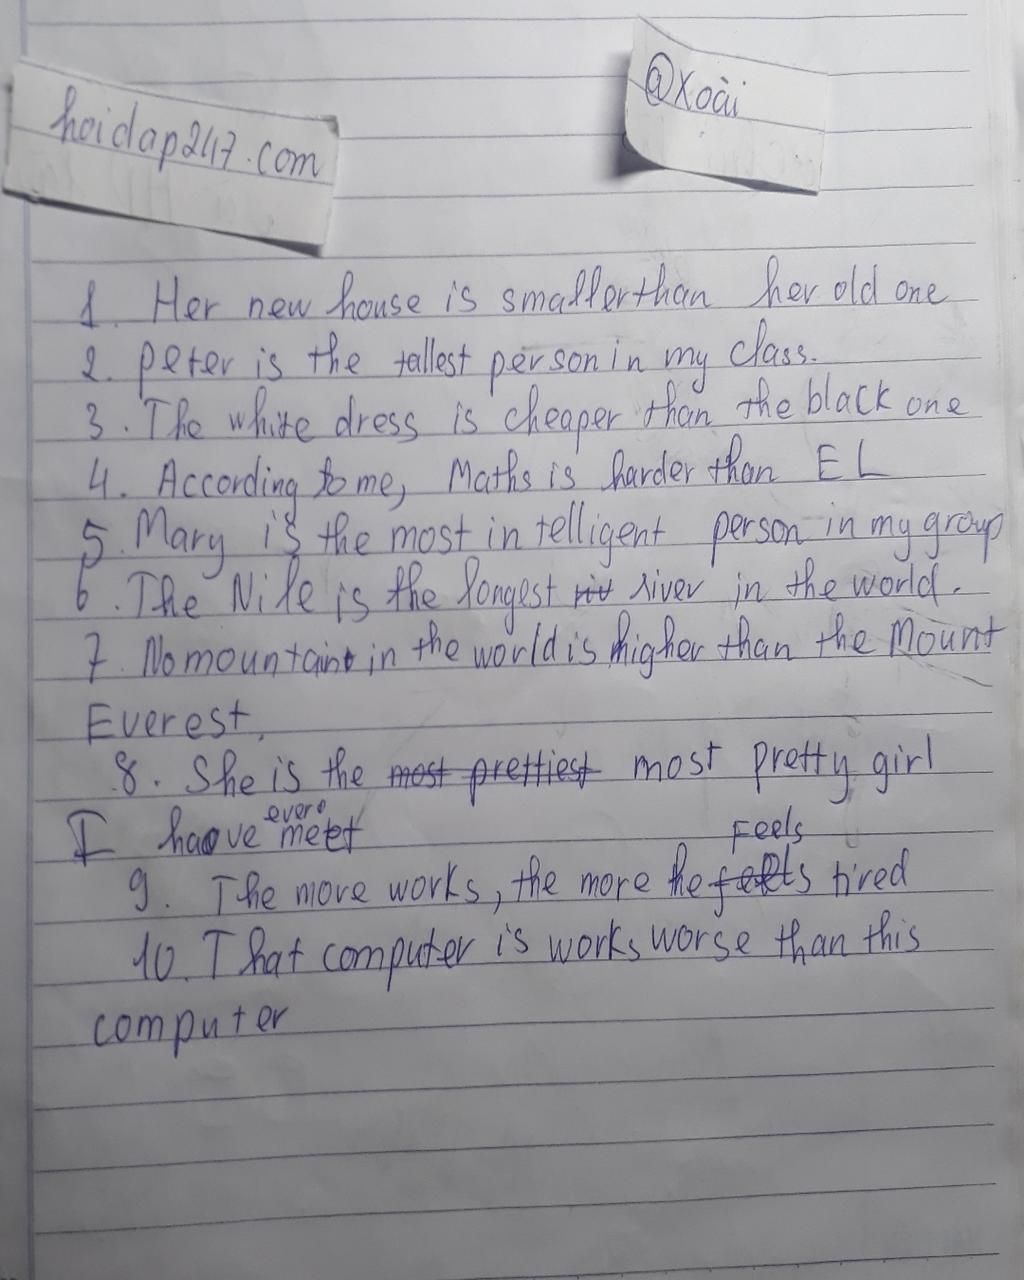 hoidap247.com
@Xoài
1. Her new house is smaller than her old one
2. peter is the tallest person in my class.
3. The white dress is cheaper than the black one
4. According to me, Maths is harder than EL
5. Mary is the most intelligent person in my group
6. The Nile is the longest river in the world.
7. No mountain in the world is higher than the Mount
Everest.
8. She is the most prettiest most pretty girl
I have ever met
9. The more works, the more he Feels tired
10. That computer is works worse than this
computer